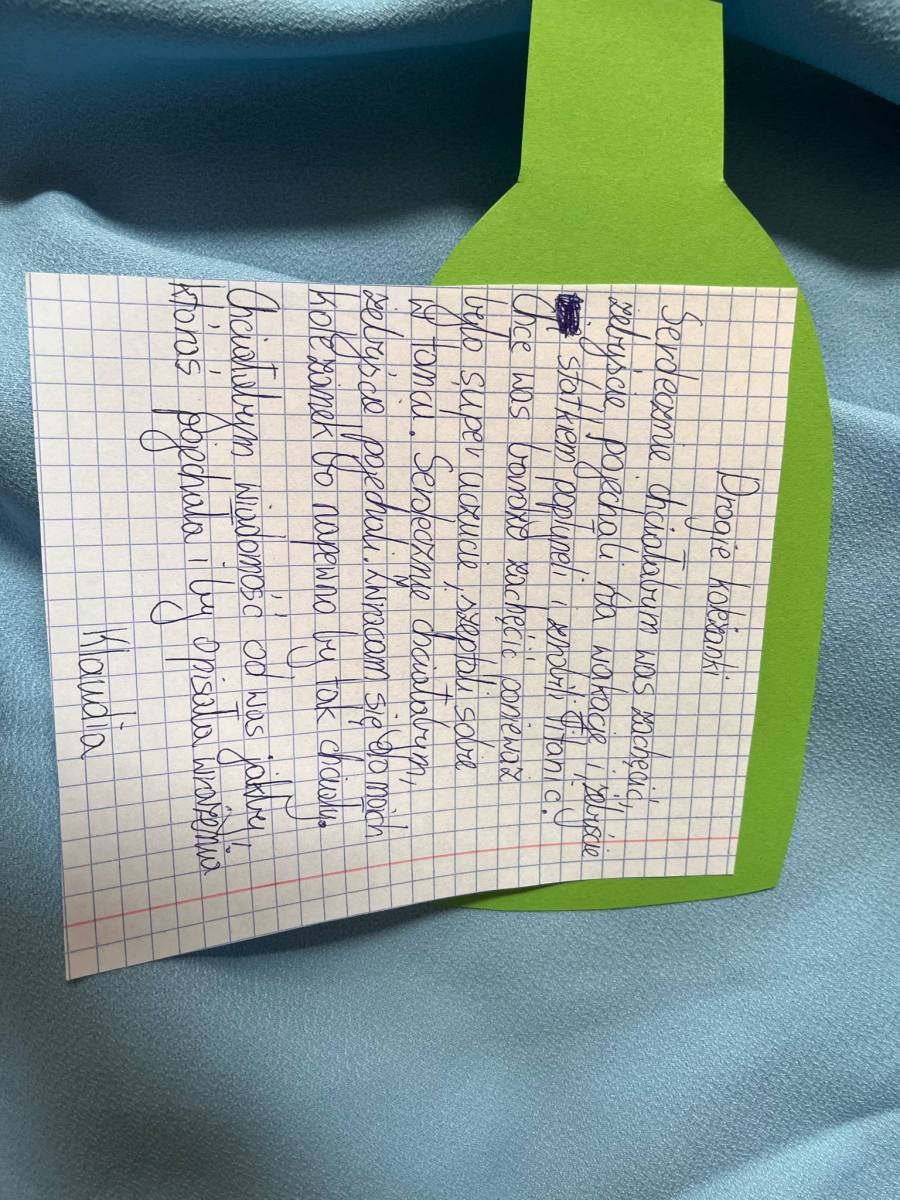 Drogie koleżanki
Serdecznie chciałabym was zachęcić,
żebyście pojechali na wakacje i żebyście
statkem popłyneli i zmówili Titanic.
Chce was bardzo zachęcić ponieważ
było super uczucie, szeptali sobie
by tomu. Serdecznie chciałabym,
żebyście pojechali. Zwracam się do moich
koleżanek bo napewno by tak chciały.
Chciałabym widomość od was jakby
któraś pojechała i by opisała wrażenia
Klaudia